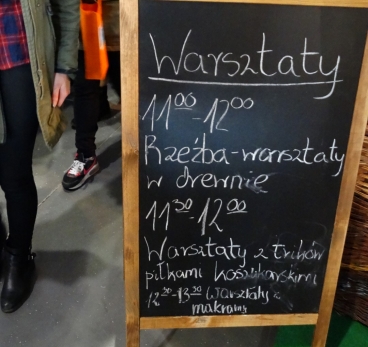 Warsztaty
11⁰⁰-12⁰⁰
Rzeźba-warsztaty
w drewnie
11³⁰-12⁰⁰
Warsztaty z trików
piłkami koszykarskimi
12³⁰-13³⁰ Warsztaty z
makramy